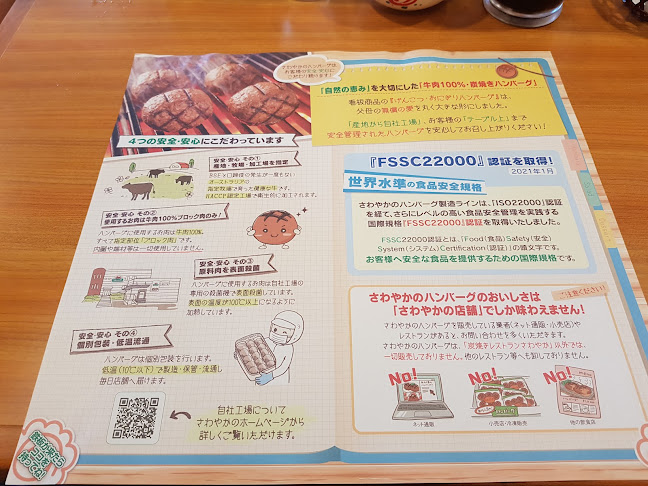 さわやかのハンバーグは
お客様の安全・安心に
こだわり続けます!
「自然の恵み」を大切にした「牛肉100%・炭焼きハンバーグ」
看板商品の『げんこつ・おにぎりハンバーグ』は、
父母の無償の愛を丸く大きな形にしました。
「産地から自社工場」、お客様の「テーブル上」まで
安全管理されたハンバーグを安心してお召し上がりください!
4つの安全・安心にこだわっています
安全・安心 その①
産地・牧場・加工場を指定
オーストラリアの
指定牧場で育った健康な牛です。
HACCP認定工場で衛生的に加工されます。
安全・安心 その②
使用するお肉は牛肉100%ブロック肉のみ!
ハンバーグに使用するお肉は牛肉100%、
すべて指定部位「ブロック肉」です。
内臓や端材等は一切使用していません。
安全・安心 その③
原料肉を表面殺菌
ハンバーグに使用するお肉は自社工場の
専用の殺菌機で表面殺菌しています。
表面の温度が100℃以上になるように
加熱しています。
安全・安心 その④
個別包装・低温流通
ハンバーグは個別包装を行います。
低温(10℃以下)で製造・保管・流通し
毎日店舗へ届けます。
自社工場について
さわやかのホームページから
詳しくご覧いただけます。
『FSSC22000』認証を取得!
2021年1月
世界水準の食品安全規格
さわやかのハンバーグ製造ラインは、「ISO22000」認証
を経て、さらにレベルの高い食品安全管理を実践する
国際規格「FSSC22000」認証を取得いたしました。
FSSC22000認証とは、「Food(食品)Safety(安全)
System(システム)Certification(認証)」の頭文字です。
お客様へ安全な食品を提供するための国際規格です。
ご注意ください!
さわやかのハンバーグのおいしさは
「さわやかの店舗」でしか味わえません!
さわやかのハンバーグを販売している業者(ネット通販・小売店)や
レストランがあると、お問い合わせを多くいただきます。
さわやかのハンバーグは、「炭焼きレストランさわやか」以外では、
一切販売しておりません。他のレストラン等へも卸しておりません。
No!
No!
No!
ネット通販
小売店・冷凍販売
他の飲食店